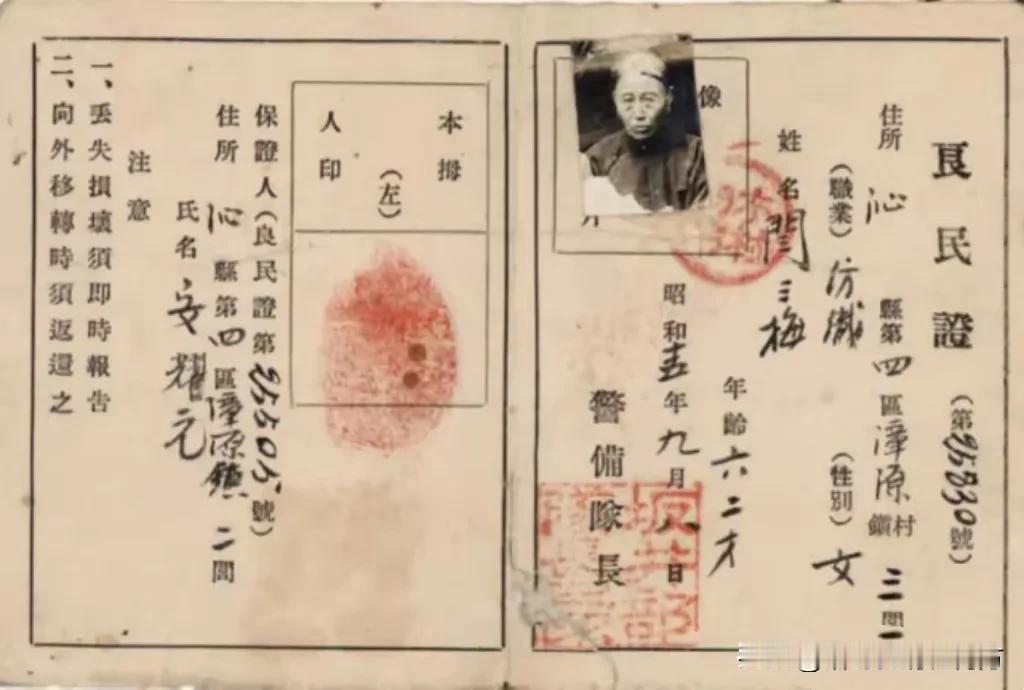 良民證（第25830號）
住所 沁縣第四區漳源村鎮三閭
（職業）仿織（性別）女
姓名 閆三梅 年齡六二才
像片
昭和 年九月八日
警備隊長
本拇
（左）
人印
保證人（良民證第25505號）
住所 沁縣第四區漳源鎮二閭
氏名 安耀元
注意
一、丟失損壞須即時報告
二、向外移轉時須返還之